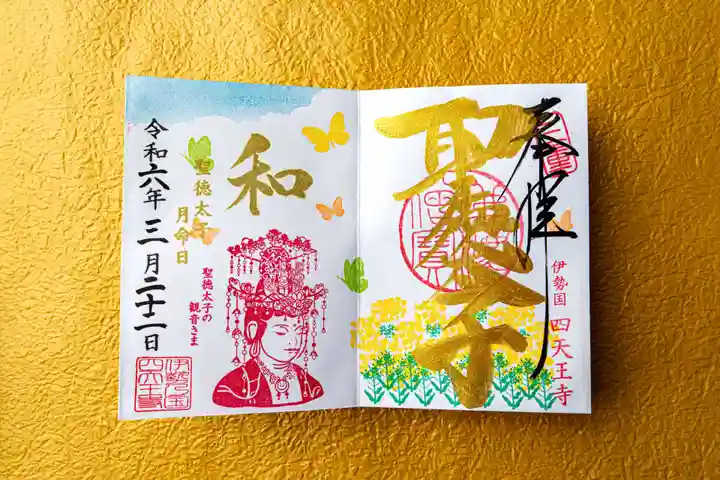 奉拝
三重
聖徳太子
伊勢国 四天王寺
和
聖徳太子
月命日
聖徳太子の
観音さま
令和六年 三月二十二日
伊勢国
四天王寺